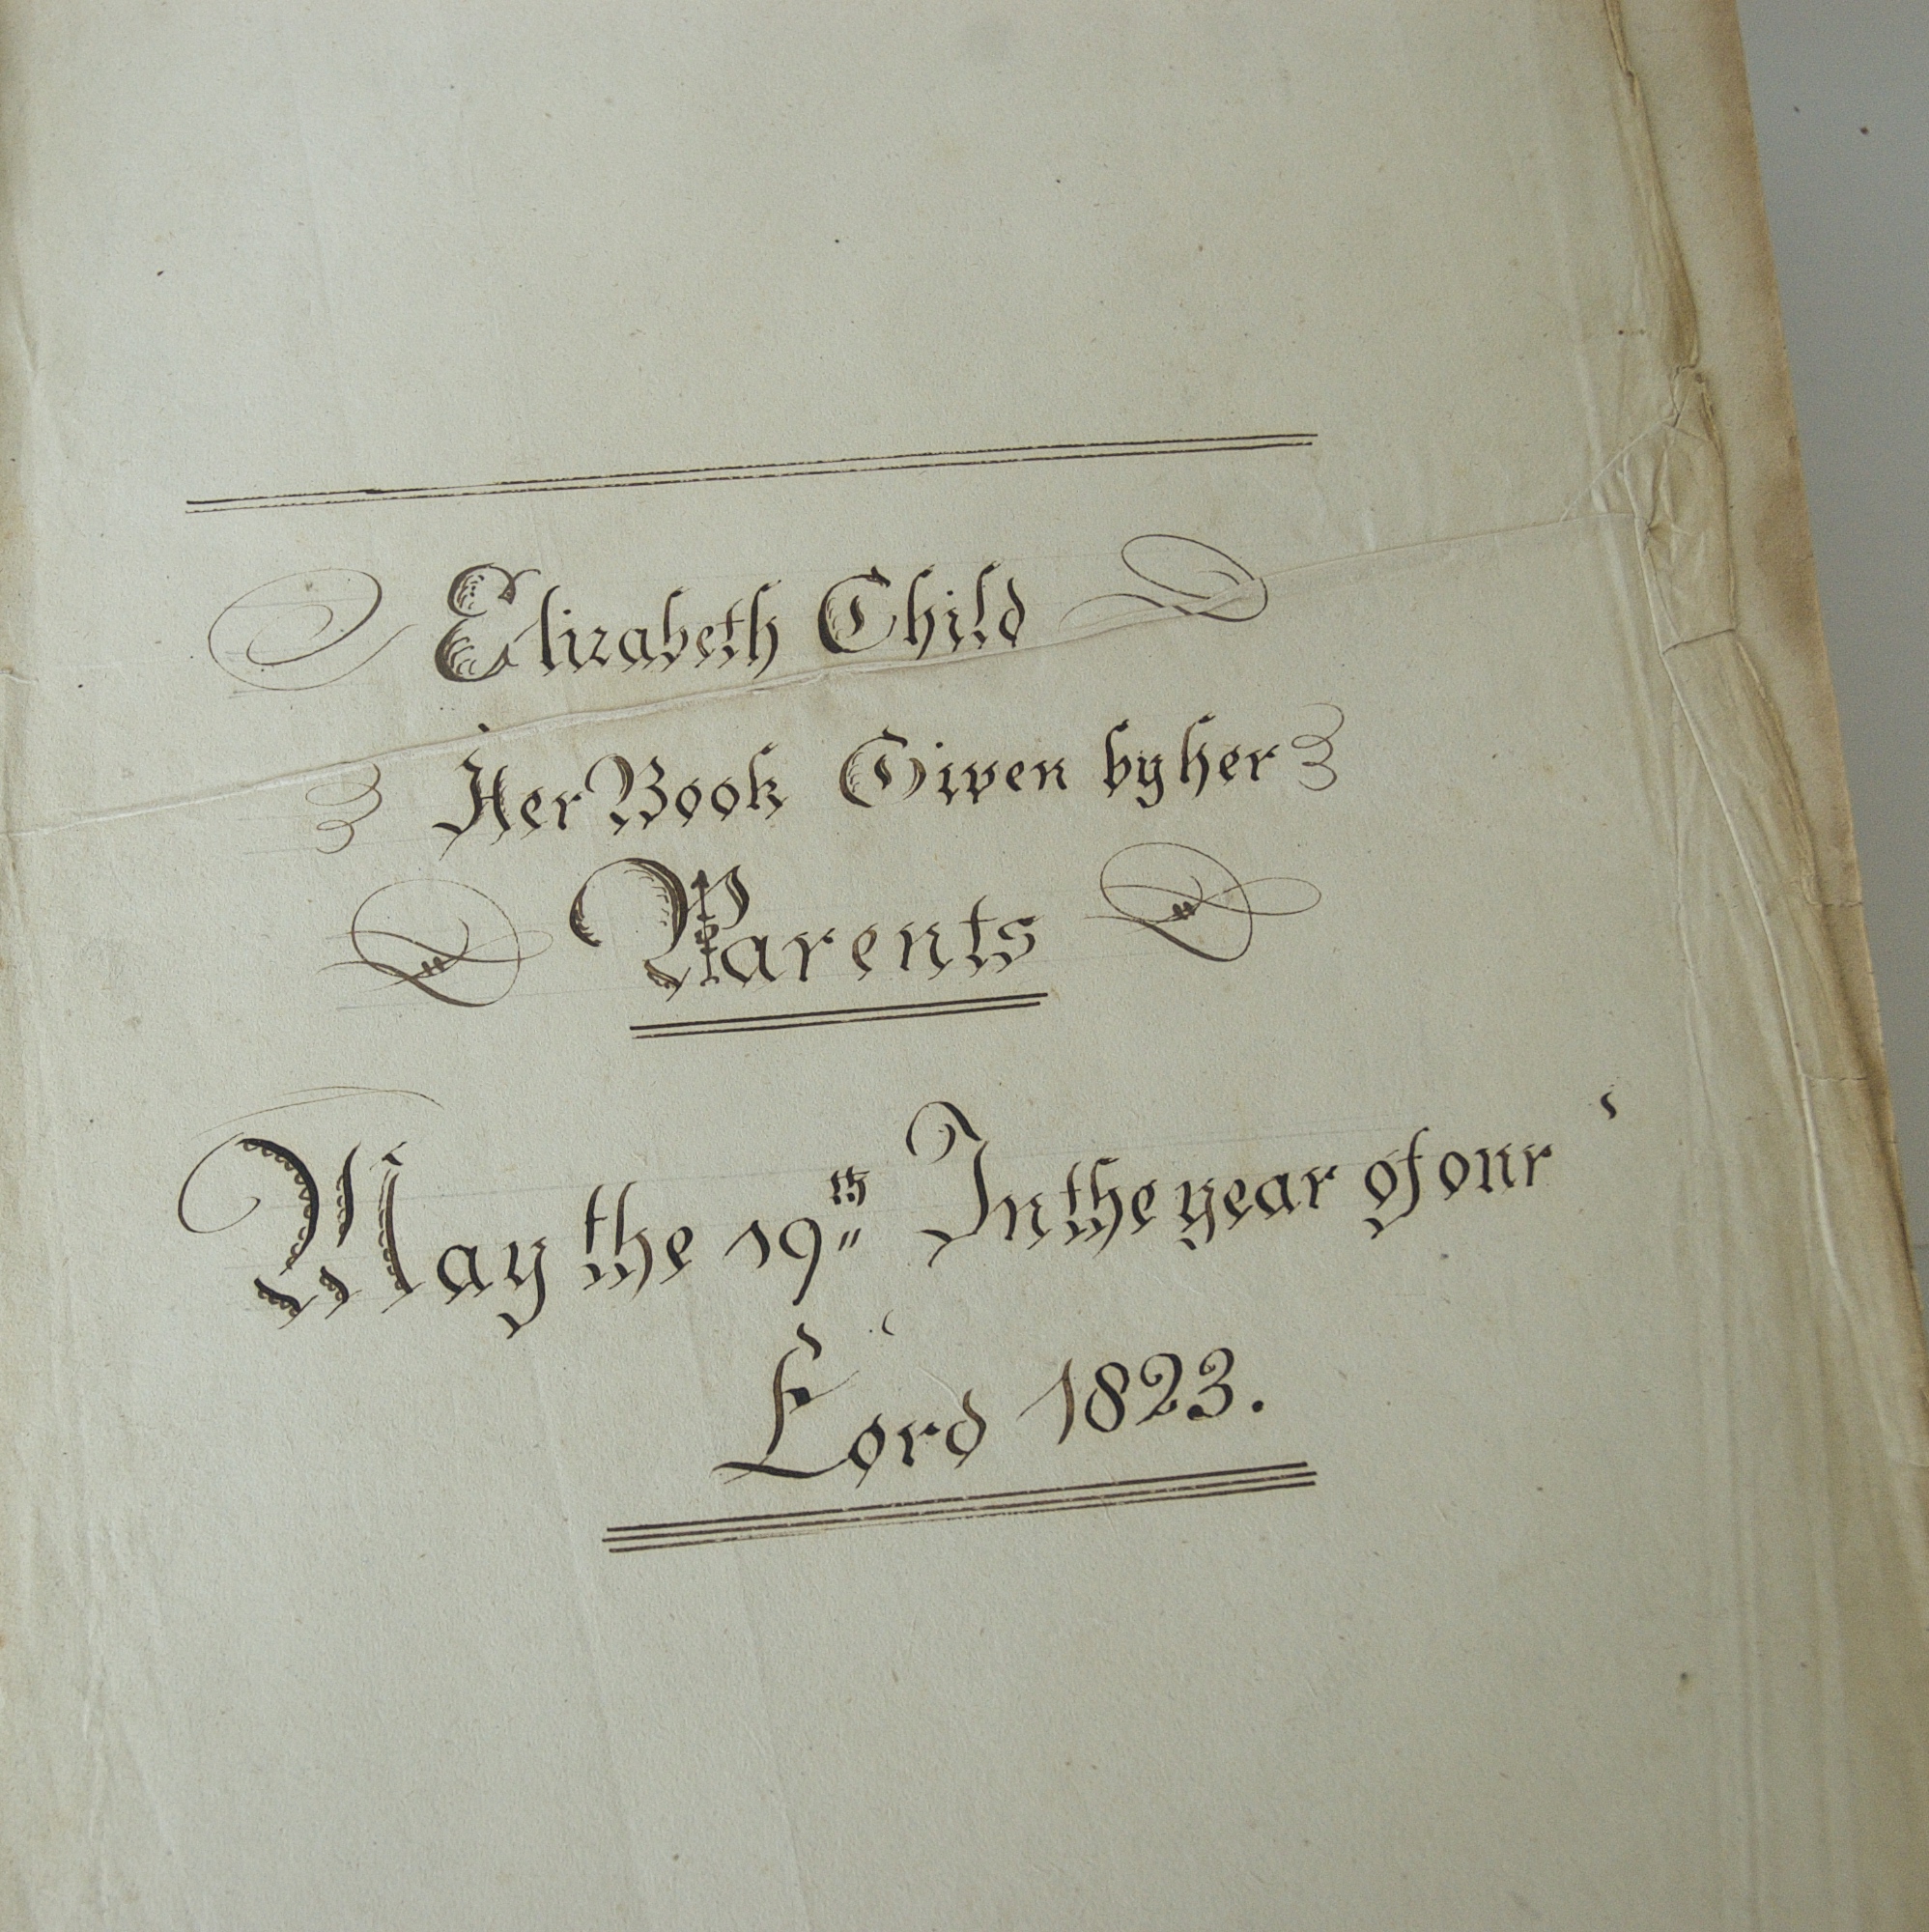 Elizabeth Child
Her Book Given by her
Parents
May the 19th In the year of our
Lord 1823.